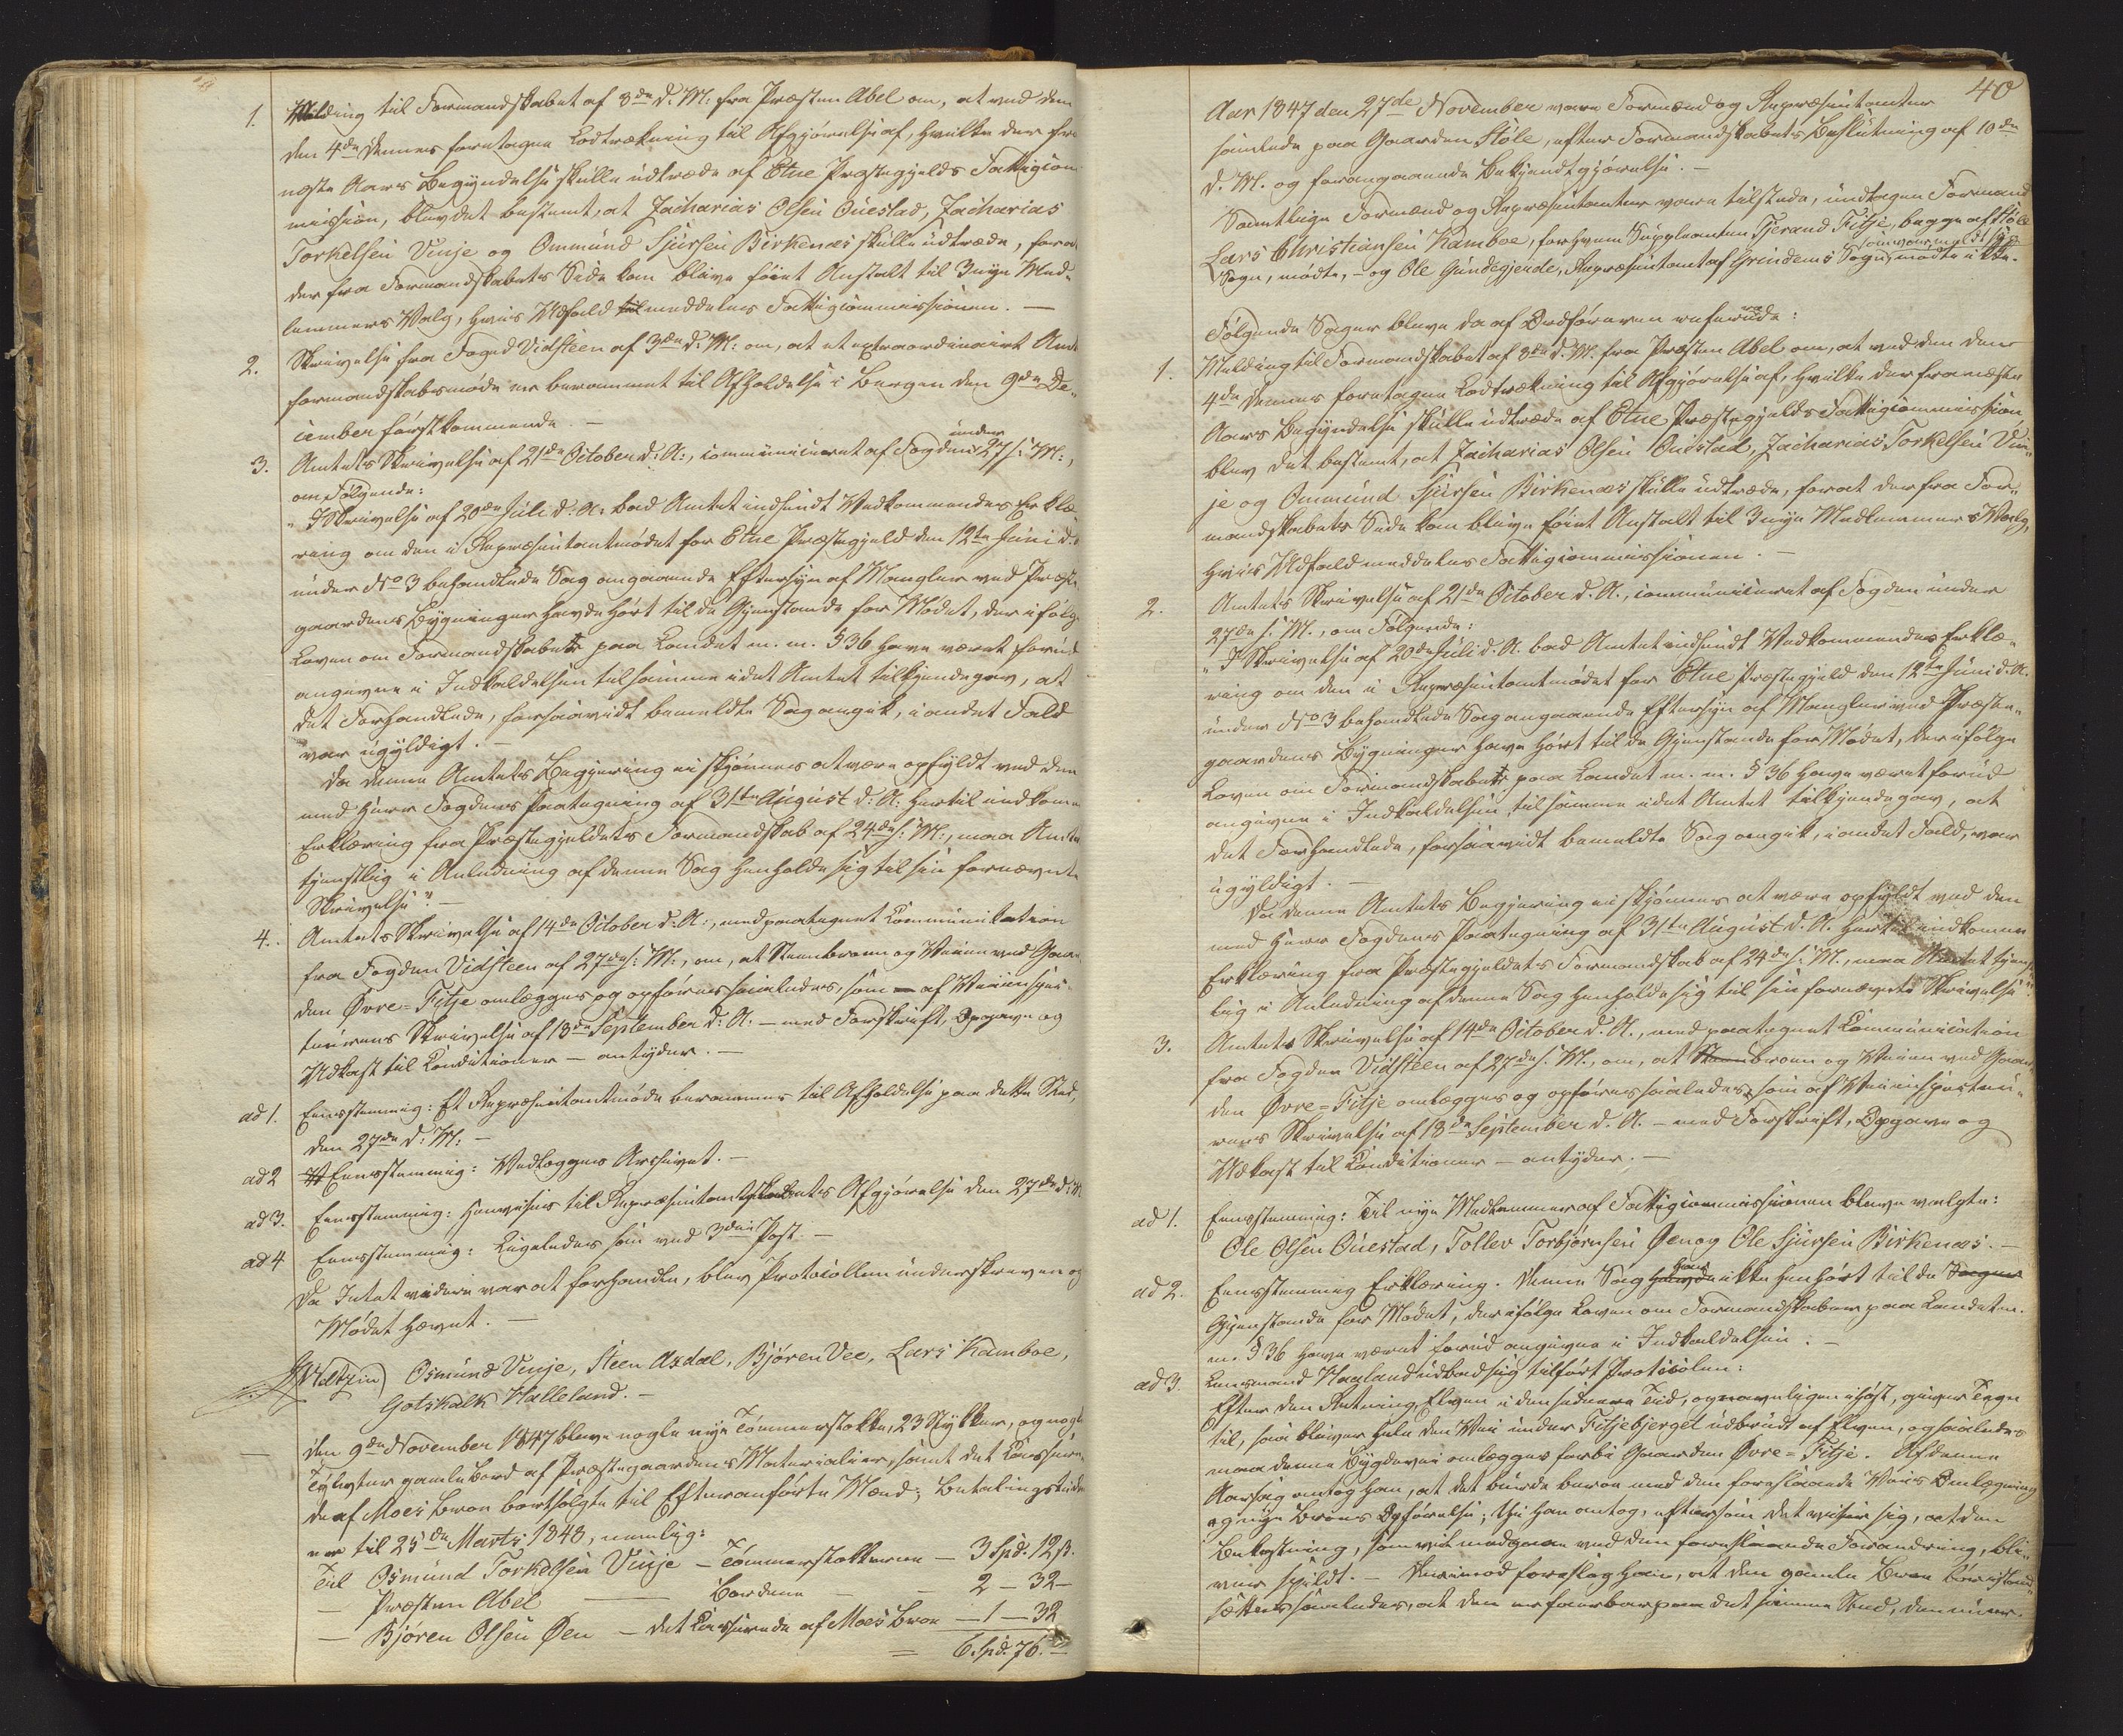 1. Melding til Formandskabet af 8de d. M: fra Præsten Abel om, at ved den
den 4de dennes foretagne Lodtrækning til Afgjørelse af, hvilke der fra
næste Aars Begyndelse skulle udtræde af Etne Præstegjelds Fattigcom-
mission, blev det bestemt, at Zacharias Olsen Qvestad, Zacharias
Torkelsen Vinje og Ommund Sjursen Birkenæs skulle udtræde, forat
der fra Formandskabets Side kan blive føiet Anstalt til 3 nye Med-
lemmers Valg, hvis Udfald til meddeles Fattigcommissionen. —
2. Skrivelse fra Foged Vidsteen af 3die d. M: om, at et extraordinairt Amt-
formandskabsmøde er berammet til Afholdelse i Bergen den 9de De-
cember førstkommende. —
3. Amtets Skrivelse af 21de October d: A:, communiceret af Fogden under 27 s: M:,
om Følgende:
"I Skrivelse af 20de Juli d: A: bad Amtet indsendt Vedkommendes Erklæ-
ring om den i Repræsentantmødet for Etne Præstegjeld den 12te Juni d. A.
under No 3 behandlede Sag angaaende Eftersyn af Mangler ved Præste-
gaardens Bygninger havde hørt til de Gjenstande for Mødet, der ifølge
Loven om Formandskabet paa Landet m. m. § 36 have været forud
angivne i Indkaldelsen til samme idet Amtet tilkjendegav, at
det Forhandlede, forsaavidt bemeldte Sag angik, i andet Fald
var ugyldigt. —
Da denne Amtets Begjering ei skjønnes at være opfyldt ved den
med Herr Fogdens Paategning af 31te August d: A: hertil indkomne
Erklæring fra Præstegjeldets Formandskab af 24de s: M:, maa Amtet
tjenstlig i Anledning af denne Sag henholde sig til sin fornævnte
Skrivelse". —
4. Amtets Skrivelse af 14de October d: A:, med paategnet Communikation
fra Fogden Vidsteen af 27de s: M:, om, at Steenbroen og Veien ved Gaar-
den Øvre-Fitje omlægges og opføres saaledes, som af Veiinspec-
teurens Skrivelse af 18de September d: A. — med Forskrift, Opgave og
Udkast til Conditioner — antydes. —
ad 1. Eensstemmig: Et Repræsentantmøde berammes til Afholdelse paa dette Sted,
den 27de d: M: —
ad 2 Eensstemmig: Vedlægges Archivet. —
ad 3. Eensstemmig: Henvises til Repræsentantskabets Afgjørelse den 27de d: M
ad 4 Eensstemmig: Ligeledes som ved 3die Post. —
Da Intet videre var at forhandle, blev Protocollen underskreven og
Mødet hævet. —
Osmund Vinje, Steen Axdal, Bjøren Vee, Lars Kamboe,
Gotskalk Halleland. —
— Den 9de November 1847 bleve nogle nye Tømmerstokke, 23 Stykker, og nogle
gamle Bord af Præstegaardens Materialier, samt det
af Moes Broe bortsolgte til Efteranførte Mænd; Betalingstiden
er til 25de Marts 1848, nemlig:
Til Osmund Torkelsen Vinje — Tømmerstokkene — 3 Spd. 12 s.
— Præsten Abel — Bordene — 2 — 32 —
— Bjøren Olsen Øen — det af Moes Broe — 1 — 32
= 6. Spd. 76. —
40
Aar 1847 den 27de November vare Formænd og Repræsentanter
samlede paa Gaarden Støle, efter Formandskabets Beslutning af 10de
d. M. og forangaaende Bekjendtgjørelse. —
Samtlige Formænd og Repræsentanter vare tilstede, undtagen Formand
Lars Christiansen Kamboe, for hvem Suppleanten Tjerand Fitje, begge af Støle
Sogn, mødte, — og Ole Gundegjerde, Repræsentant af Grindems Sogn, som var meldt syg mødte ikke.
Følgende Sager bleve da af Ordføreren refererede:
1. Melding til Formandskabet af 8de d. M. fra Præsten Abel om, at ved den den
4de dennes foretagne Lodtrækning til Afgjørelse af, hvilke der fra næste
Aars Begyndelse skulle udtræde af Etne Præstegjelds Fattigcommission
blev det bestemt, at Zacharias Olsen Qvestad, Zacharias Torkelsen Vin-
je og Ommund Sjursen Birkenæs skulle udtræde, forat der fra For-
mandskabets Side kan blive føiet Anstalt til 3 nye Medlemmers Valg,
hvis Udfald meddeles Fattigcommissionen. —
2. Amtets Skrivelse af 21de October d. A., communiceret af Fogden under
27de s. M., om Følgende:
"I Skrivelse af 20de Juli d. A. bad Amtet indsendt Vedkommendes Erklæ-
ring om den i Repræsentantmødet for Etne Præstegjeld den 12te Juni d. A.
under No 3 behandlede Sag angaaende Eftersyn af Mangler ved Præste-
gaardens Bygninger have hørt til de Gjenstande for Mødet, der ifølge
Loven om Formandskabet paa Landet m. m. § 36 have været forud
angivne i Indkaldelsen til samme idet Amtet tilkjendegav, at
det Forhandlede, forsaavidt bemeldte Sag angik, i andet Fald, var
ugyldigt. —
Da denne Amtets Begjering ei skjønnes at være opfyldt ved den
med Herr Fogdens Paategning af 31te August d. A. hertil indkomne
Erklæring fra Præstegjeldets Formandskab af 24de s. M., maa Amtet tjenst-
lig i Anledning af denne Sag henholde sig til sin fornævnte Skrivelse".
3. Amtets Skrivelse af 14de October d. A., med paategnet Communication
fra Fogden Vidsteen af 27de s. M., om, at Steenbroen og Veien ved Gaar-
den Øvre-Fitje omlægges og opføres saaledes, som af Veiinspecteu-
rens Skrivelse af 18de September d. A. — med Forskrift, Opgave og
Udkast til Conditioner — antydes. —
ad 1. Eensstemmig: Til nye Medlemmer af Fattigcommissionen bleve valgte:
Ole Olsen Qvestad, Tollev Torbjørnsen Øen og Ole Sjursen Birkenæs. —
ad 2. Eensstemmig Erklæring. Denne Sag havde har ikke henhørt til de Sager
Gjenstande for Mødet, der ifølge Loven om Formandskaber paa Landet m.
m. § 36 have været forud angivne i Indkaldelsen. —
ad 3. Lensmand Haaland udbad sig tilført Protocolen:
Efter den Retning, Elven i den senere Tid, og navnligen i høst, giver Tegn
til, som bliver hele den Vei under Fitjebjerget udbrudt af Elven, og saaledes
maa denne Bygdevei omlægges forbi Gaarden Øvre-Fitje. Af denne
Aarsag antog han, at det burde beroe med den foreslaaede Veis Omlægning
og nye Broes Opførelse; thi han antog, eftersom det viser sig, at den
Bekostning, som vil medgaae ved den foreslaaede Forandring, bli-
ver spildt. — Derimod foreslog han, at den gamle Broe istand-
sættes saaledes, at den er farbar paa det samme Sted, den nu er.